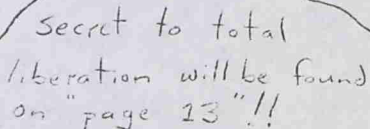 Secret to total
liberation will be found
on "page 13"!!